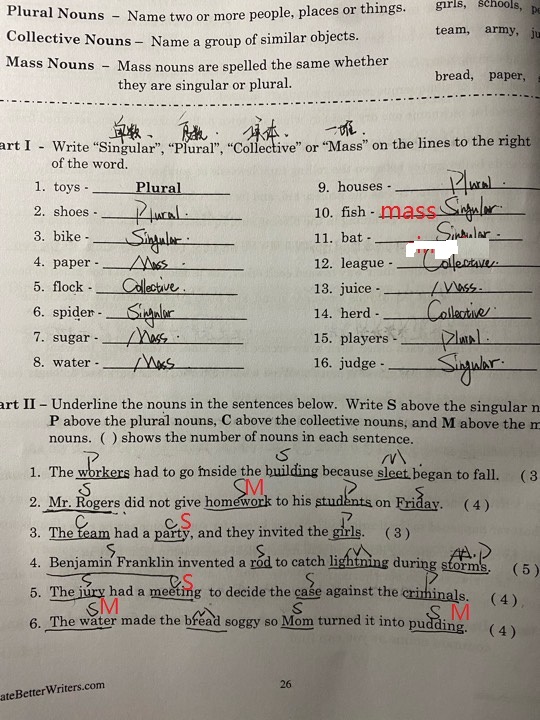 Plural Nouns – Name two or more people, places or things. girls, schools,
Collective Nouns – Name a group of similar objects. team, army,
Mass Nouns – Mass nouns are spelled the same whether bread, paper,
they are singular or plural.
单数. 复数. 集体. 一堆.
art I - Write "Singular", "Plural", "Collective" or "Mass" on the lines to the right
of the word.
1. toys - Plural
2. shoes - Plural.
3. bike - Singular.
4. paper - Mass.
5. flock - Collective.
6. spider - Singular
7. sugar - Mass.
8. water - Mass
9. houses - Plural.
10. fish - mass Singular.
11. bat - Singular.
12. league - Collective.
13. juice - Mass.
14. herd - Collective.
15. players - Plural.
16. judge - Singular.
art II – Underline the nouns in the sentences below. Write S above the singular n
P above the plural nouns, C above the collective nouns, and M above the m
nouns. ( ) shows the number of nouns in each sentence.
P S M
1. The workers had to go inside the building because sleet began to fall. (3
S S M P S
2. Mr. Rogers did not give homework to his students on Friday. (4)
C C S P
3. The team had a party, and they invited the girls. (3)
S S M P
4. Benjamin Franklin invented a rod to catch lightning during storms. (5)
S S S P
5. The jury had a meeting to decide the case against the criminals. (4)
S M M S S M
6. The water made the bread soggy so Mom turned it into pudding. (4)
ateBetterWriters.com 26